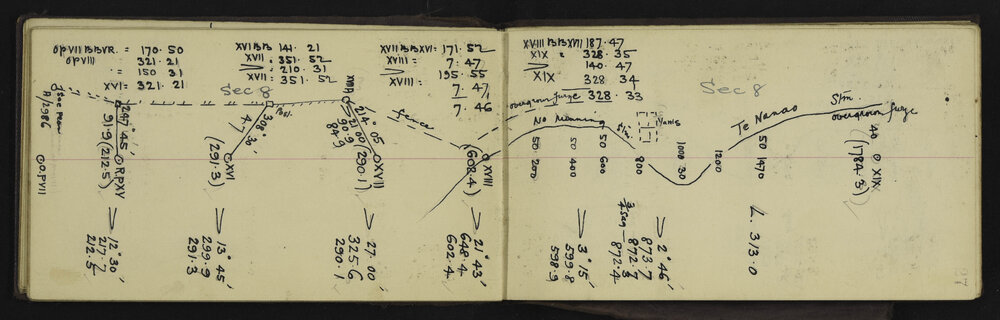 OPVII BBVR. = 170.50
OPVIII 321.21
" = 150 31
XVI = 321.21
XVI BB 141. 21
XVII = 351.52
> = 210.31
XVII = 351.52
XVII BB XVI = 171.52
XVIII = 7.47
> 195.55
XVIII = 7.47
7.46
XVIII BB XVII 187.47
XIX = 328 35
> 140.47
XIX 328 34
328.33
Sec 8
Sec 8
See Plan
A/2986
O.PVII
247° 45'
91.9 (212.5)
RPXV
308° 30'
47
(291.3)
XVI
214° 05
21.00
90.9
84.9
(290.1)
XVII
fence
XVIII
(602.4)
overgrown furze
No Running
Stm
50 200
50 400
50 600
800
1000 30
1200
50 1470
Te Nanao
Stm.
overgrown furze
40
XIX
(1784.3)
> 12° 30'
217.7
212.5
> 13° 45'
299.9
291.3
> 27° 00'
325.6
290.1
> 21° 43'
648.4
602.4
> 3° 15'
599.8
598.9
> 2° 46'
873.7
872.7
872.4
L. 313.0